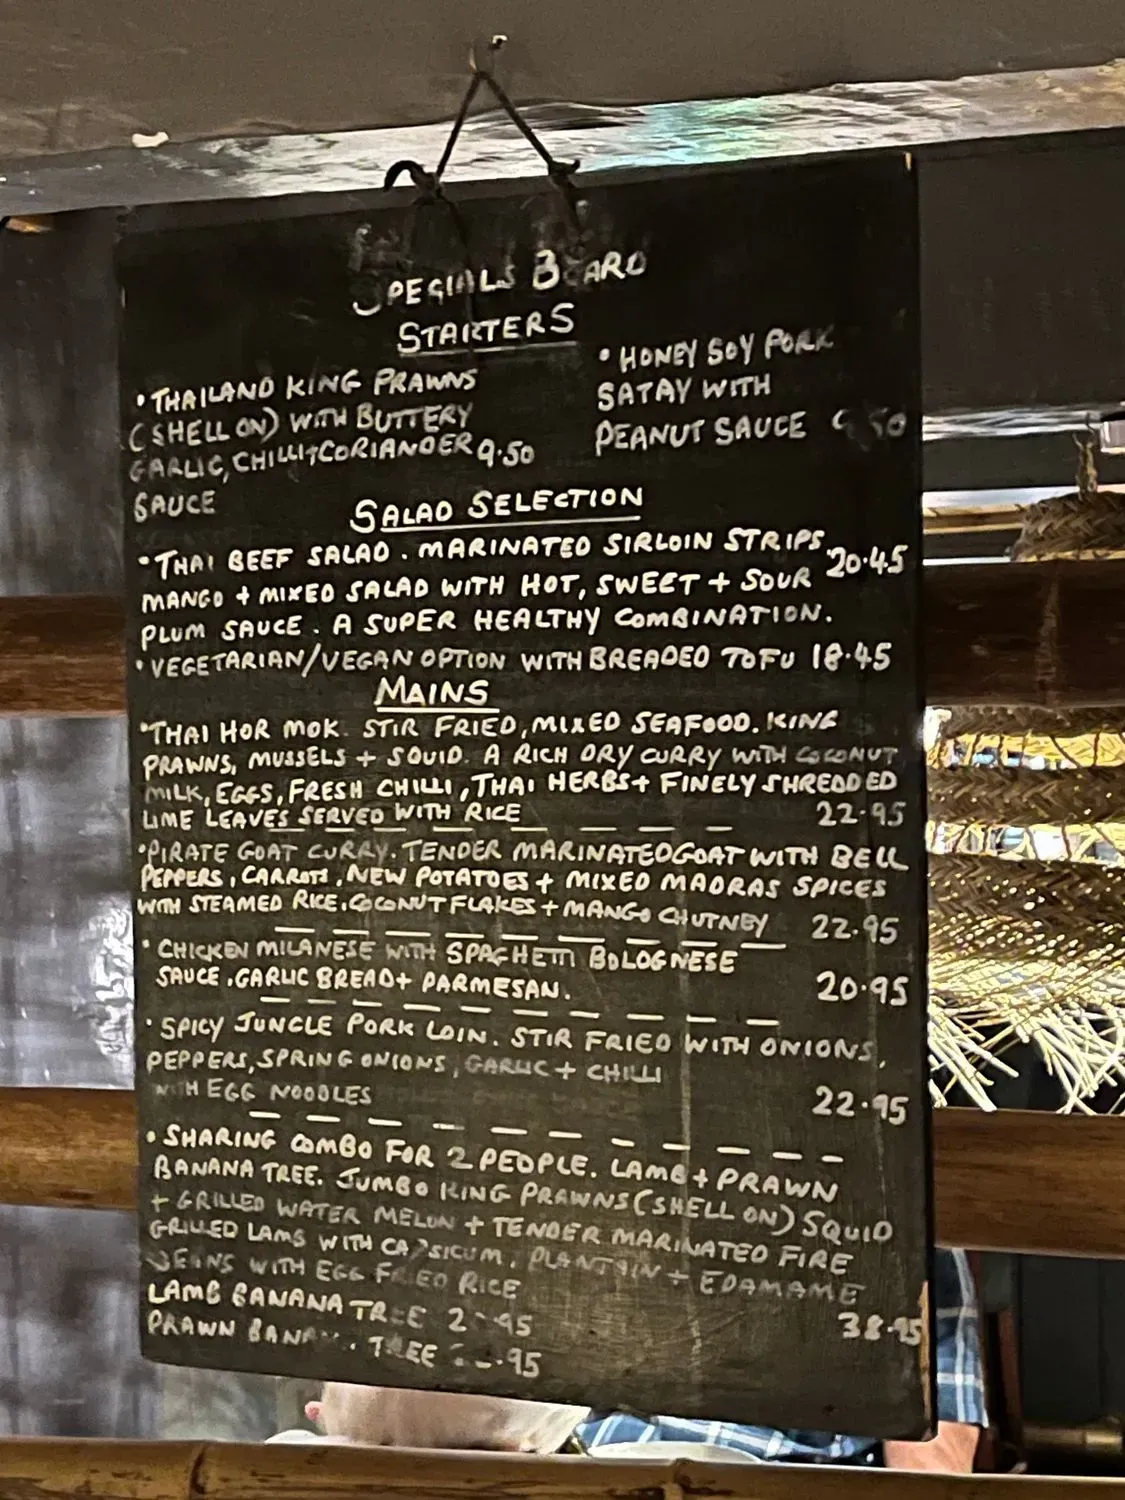 SPECIALS BOARD
STARTERS
• THAILAND KING PRAWNS
(SHELL ON) WITH BUTTERY
GARLIC, CHILLI + CORIANDER 9.50
SAUCE
• HONEY SOY PORK
SATAY WITH
PEANUT SAUCE 9.50
SALAD SELECTION
• THAI BEEF SALAD. MARINATED SIRLOIN STRIPS,
MANGO + MIXED SALAD WITH HOT, SWEET + SOUR 20.45
PLUM SAUCE. A SUPER HEALTHY COMBINATION.
• VEGETARIAN/VEGAN OPTION WITH BREADED TOFU 18.45
MAINS
• THAI HOR MOK. STIR FRIED, MIXED SEAFOOD. KING
PRAWNS, MUSSELS + SQUID. A RICH DRY CURRY WITH COCONUT
MILK, EGGS, FRESH CHILLI, THAI HERBS + FINELY SHREDDED
LIME LEAVES SERVED WITH RICE 22.95
• PIRATE GOAT CURRY. TENDER MARINATED GOAT WITH BELL
PEPPERS, CARROTS, NEW POTATOES + MIXED MADRAS SPICES
WITH STEAMED RICE, COCONUT FLAKES + MANGO CHUTNEY 22.95
• CHICKEN MILANESE WITH SPAGHETTI BOLOGNESE
SAUCE, GARLIC BREAD + PARMESAN. 20.95
• SPICY JUNGLE PORK LOIN. STIR FRIED WITH ONIONS,
PEPPERS, SPRING ONIONS, GARLIC + CHILLI
WITH EGG NOODLES 22.95
• SHARING COMBO FOR 2 PEOPLE. LAMB + PRAWN
BANANA TREE. JUMBO KING PRAWNS (SHELL ON) SQUID
+ GRILLED WATER MELON + TENDER MARINATED FIRE
GRILLED LAMB WITH CAPSICUM, PLANTAIN + EDAMAME
BEANS WITH EGG FRIED RICE 38.95
LAMB BANANA TREE
PRAWN BANANA TREE